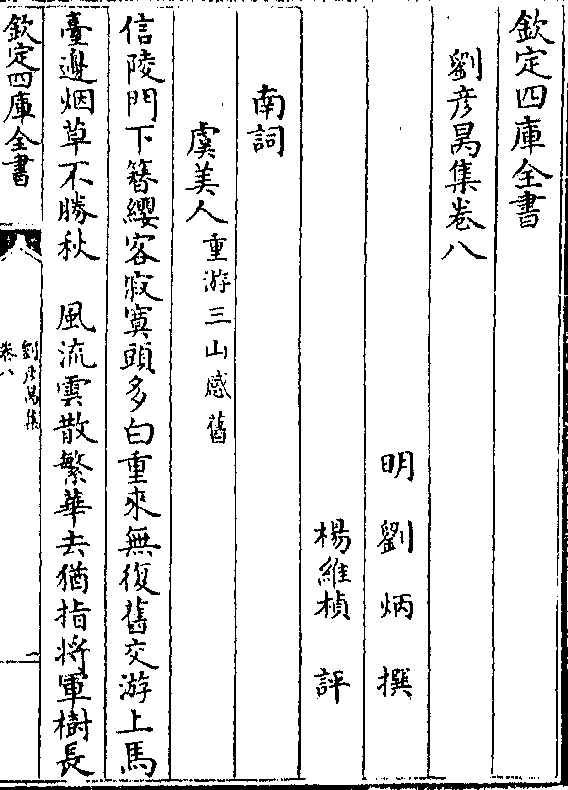 欽定四庫全書
劉彥昺集卷八
明劉炳撰
楊維楨評
南詞
虞美人重游三山感舊
信陵門下簪纓客寂寞頭多白重來無復舊交游上馬
臺邊烟草不勝秋　風流雲散繁華去猶指將軍樹長
欽定四庫全書
劉彥昺集
卷八
一